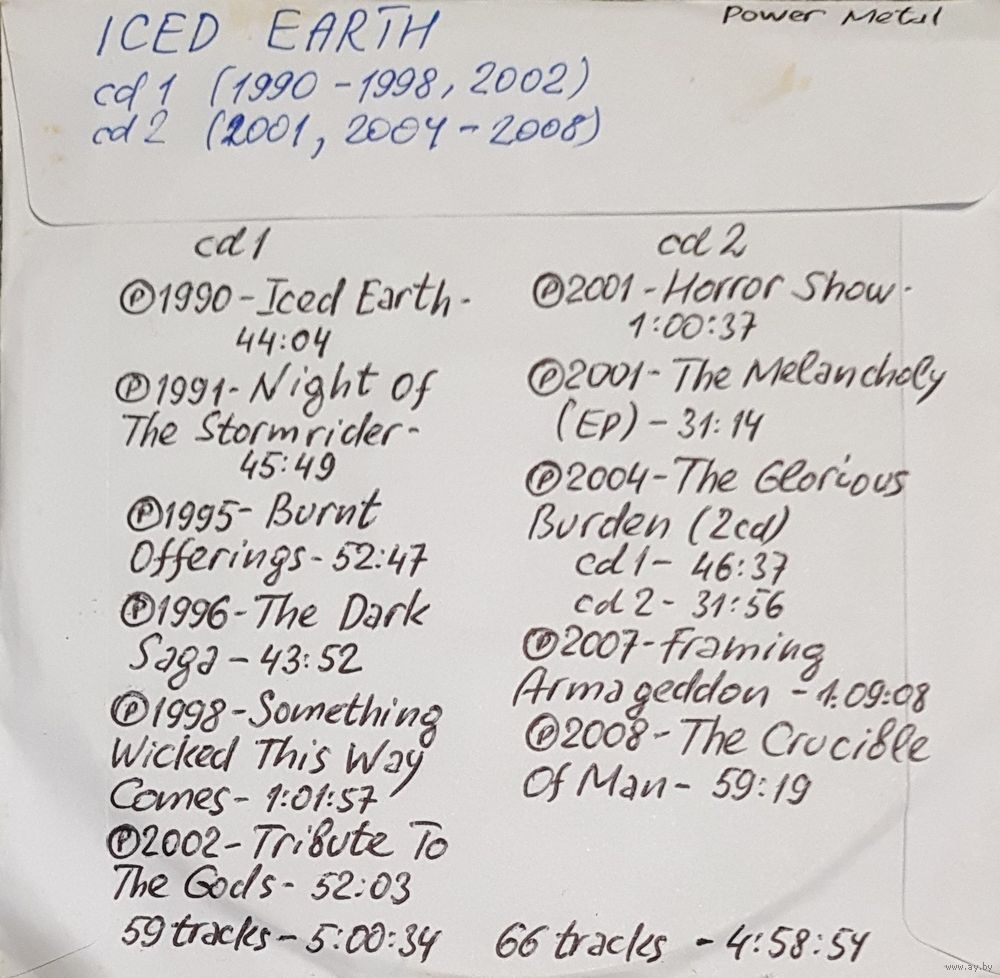 Power Metal
ICED EARTH
cd 1 (1990 - 1998, 2002)
cd 2 (2001, 2004 - 2008)
cd 1
Ⓟ1990 - Iced Earth -
44:04
Ⓟ1991 - Night Of
The Stormrider -
45:49
Ⓟ1995 - Burnt
Offerings - 52:47
Ⓟ1996 - The Dark
Saga - 43:52
Ⓟ1998 - Something
Wicked This Way
Comes - 1:01:57
Ⓟ2002 - Tribute To
The Gods - 52:03
59 tracks - 5:00:34
cd 2
Ⓟ2001 - Horror Show -
1:00:37
Ⓟ2001 - The Melancholy
(EP) - 31:14
Ⓟ2004 - The Glorious
Burden (2cd)
cd 1 - 46:37
cd 2 - 31:56
Ⓟ2007 - Framing
Armageddon - 1:09:08
Ⓟ2008 - The Crucible
Of Man - 59:19
66 tracks - 4:58:54
www.ay.by